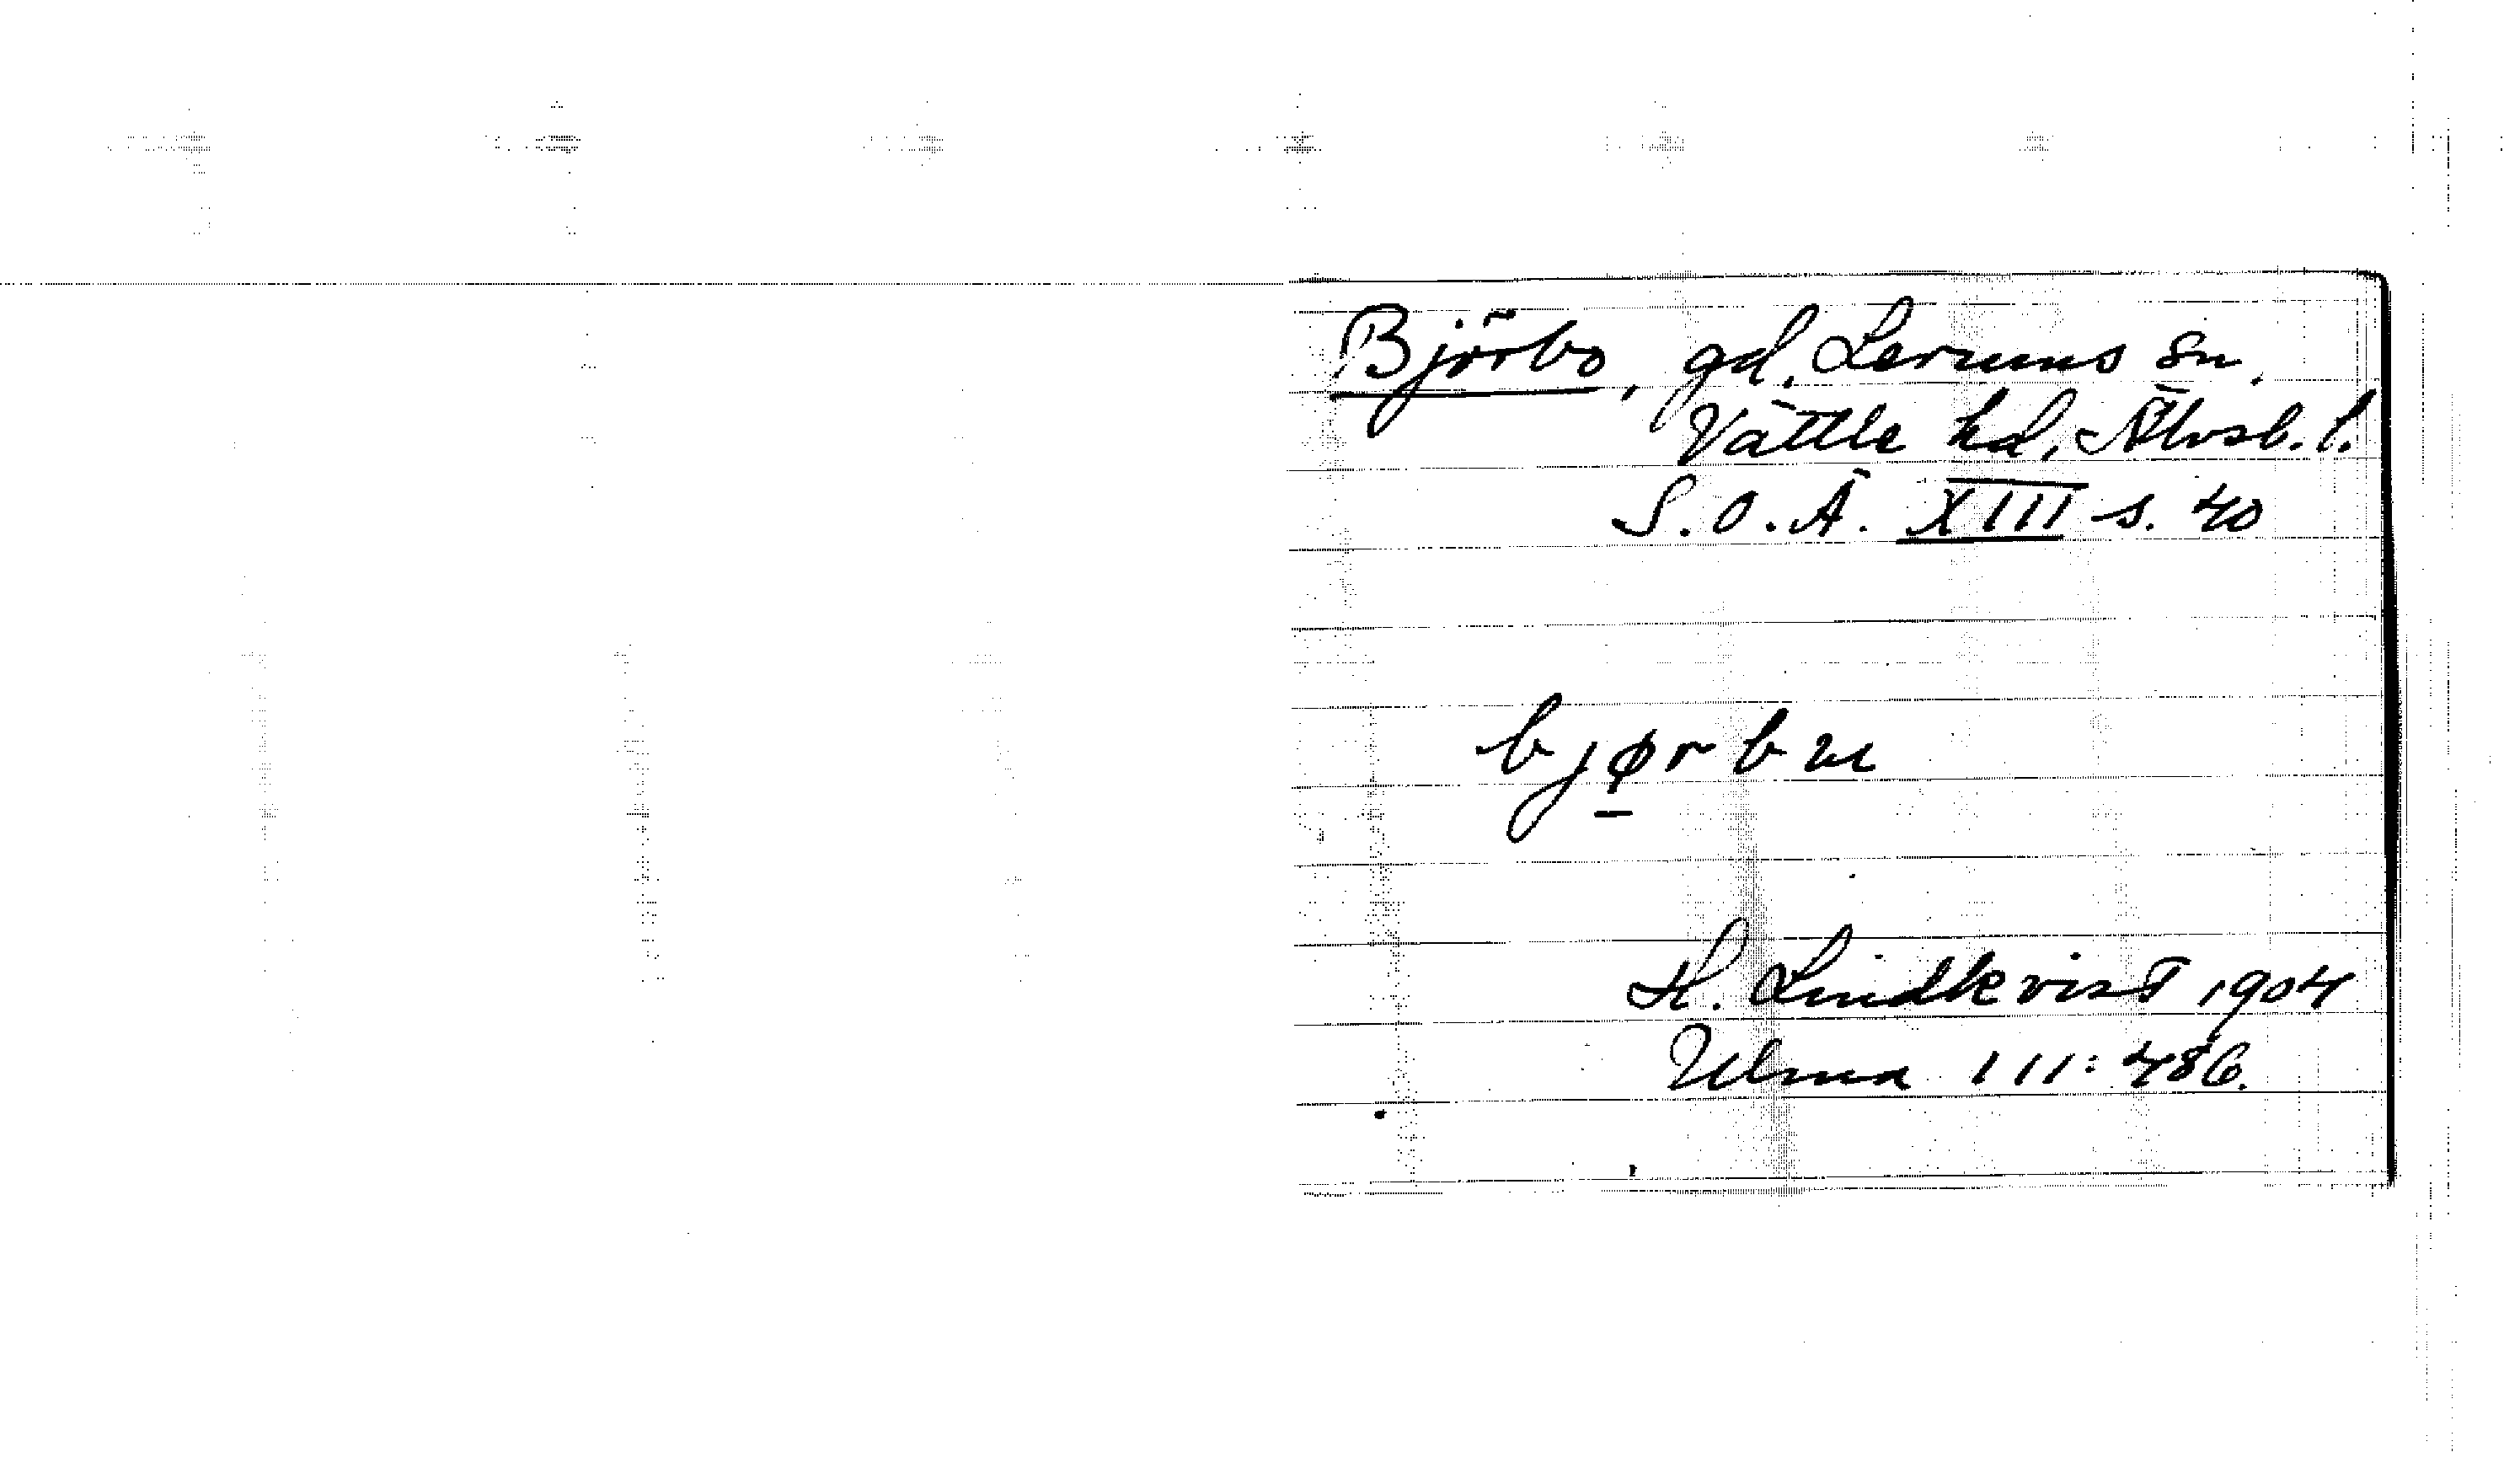 Björbo, gd. Lerums sn.
Vättle hd, Älvsb. l.
S.O.Ä. XIII s. 40
bjørbu
H. Lindkvist 1904
Ulma 111:486.